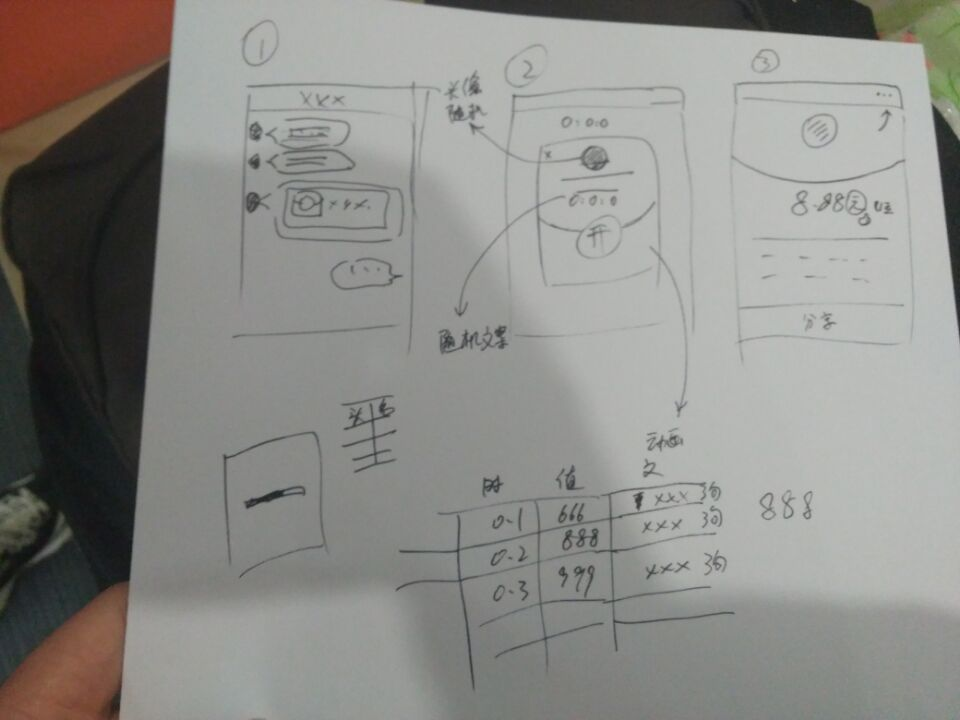 ①
xxx
xxx.
...
头像
随机
②
0:0.0
x
0:0:0
开
随机文案
③
...
8.88元
分享
头 名
动画
文
时 值
0.1 666 xxx 3句
0.2 888 xxx 3句
0.3 999 xxx 3句
888